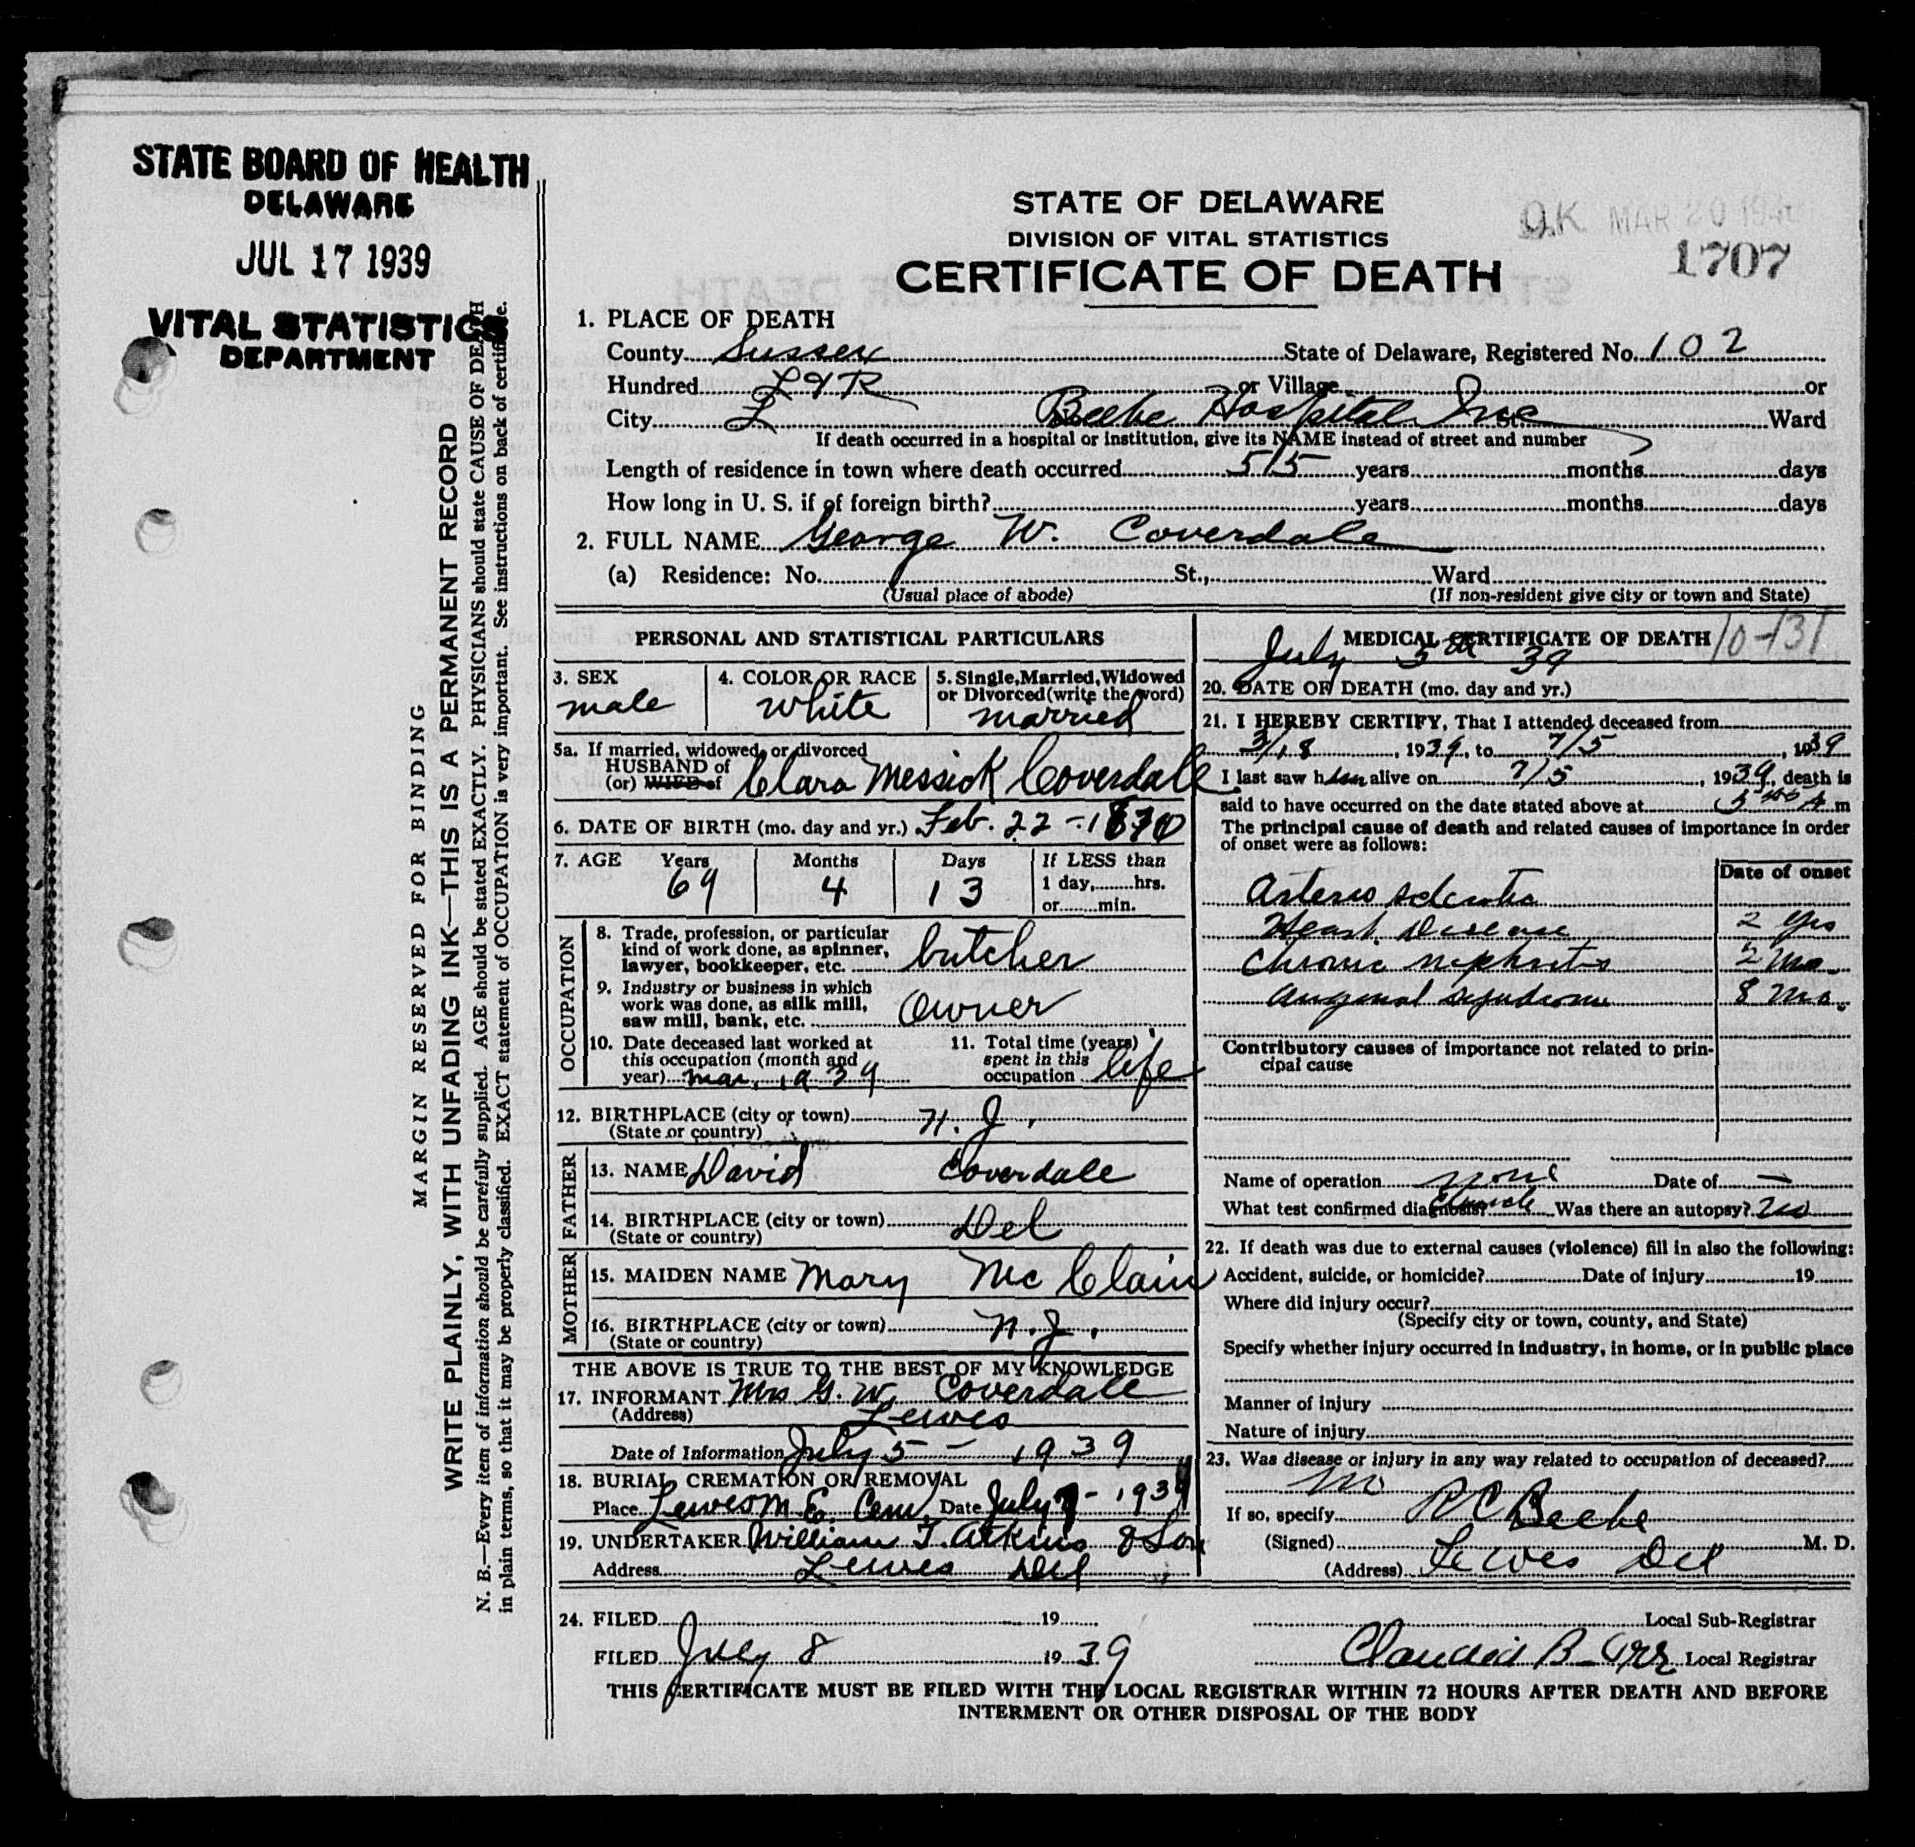 STATE BOARD OF HEALTH
DELAWARE
JUL 17 1939
VITAL STATISTICS
DEPARTMENT
MARGIN RESERVED FOR BINDING
WRITE PLAINLY, WITH UNFADING INK—THIS IS A PERMANENT RECORD
N. B.—Every item of information should be carefully supplied. AGE should be stated EXACTLY. PHYSICIANS should state CAUSE OF DEATH
in plain terms, so that it may be properly classified. EXACT statement of OCCUPATION is very important. See instructions on back of certificate.
STATE OF DELAWARE
DIVISION OF VITAL STATISTICS
CERTIFICATE OF DEATH
O.K. MAR 20 194
1707
1. PLACE OF DEATH
County Sussex State of Delaware, Registered No. 102
Hundred L & R or Village or
City L Beebe Hospital Inc St. Ward
If death occurred in a hospital or institution, give its NAME instead of street and number
Length of residence in town where death occurred 55 years months days
How long in U. S. if of foreign birth? years months days
2. FULL NAME George W. Coverdale
(a) Residence: No. St., Ward
(Usual place of abode) (If non-resident give city or town and State)
PERSONAL AND STATISTICAL PARTICULARS
3. SEX male
4. COLOR OR RACE white
5. Single, Married, Widowed or Divorced (write the word) married
5a. If married, widowed, or divorced
HUSBAND of
(or) WIFE of Clara Messick Coverdale
6. DATE OF BIRTH (mo. day and yr.) Feb. 22 - 1870
7. AGE Years Months Days If LESS than
69 4 13 1 day, hrs.
or min.
OCCUPATION
8. Trade, profession, or particular
kind of work done, as spinner,
lawyer, bookkeeper, etc. butcher
9. Industry or business in which
work was done, as silk mill,
saw mill, bank, etc. owner
10. Date deceased last worked at
this occupation (month and
year) Mar. 1939
11. Total time (years)
spent in this
occupation life
12. BIRTHPLACE (city or town) N. J.
(State or country)
FATHER
13. NAME David Coverdale
14. BIRTHPLACE (city or town) Del
(State or country)
MOTHER
15. MAIDEN NAME Mary McClain
16. BIRTHPLACE (city or town) N. J.
(State or country)
THE ABOVE IS TRUE TO THE BEST OF MY KNOWLEDGE
17. INFORMANT Mrs G. W. Coverdale
(Address) Lewes
Date of Information July 5 - 1939
18. BURIAL, CREMATION OR REMOVAL
Place Lewes M. E. Cem. Date July 7 - 1939
19. UNDERTAKER William T. Atkins & Son
Address Lewes Del
MEDICAL CERTIFICATE OF DEATH 10-131
July 5th 39
20. DATE OF DEATH (mo. day and yr.)
21. I HEREBY CERTIFY, That I attended deceased from
3/18, 1939, to 7/5, 1939
I last saw him alive on 7/5, 1939, death is
said to have occurred on the date stated above at A m
The principal cause of death and related causes of importance in order
of onset were as follows:
Date of onset
Arterio sclerotic
Heart Disease 2 yrs
Chronic nephritis 2 mo.
Anginal syndrome 8 mo.
Contributory causes of importance not related to prin-
cipal cause
Name of operation none Date of —
What test confirmed diagnosis? Was there an autopsy? no
22. If death was due to external causes (violence) fill in also the following:
Accident, suicide, or homicide? Date of injury 19
Where did injury occur?
(Specify city or town, county, and State)
Specify whether injury occurred in industry, in home, or in public place
Manner of injury
Nature of injury
23. Was disease or injury in any way related to occupation of deceased?
no
If so, specify
(Signed) R C Beebe M. D.
(Address) Lewes Del
24. FILED 19 Local Sub-Registrar
FILED July 8 1939 B. Orr Local Registrar
THIS CERTIFICATE MUST BE FILED WITH THE LOCAL REGISTRAR WITHIN 72 HOURS AFTER DEATH AND BEFORE
INTERMENT OR OTHER DISPOSAL OF THE BODY